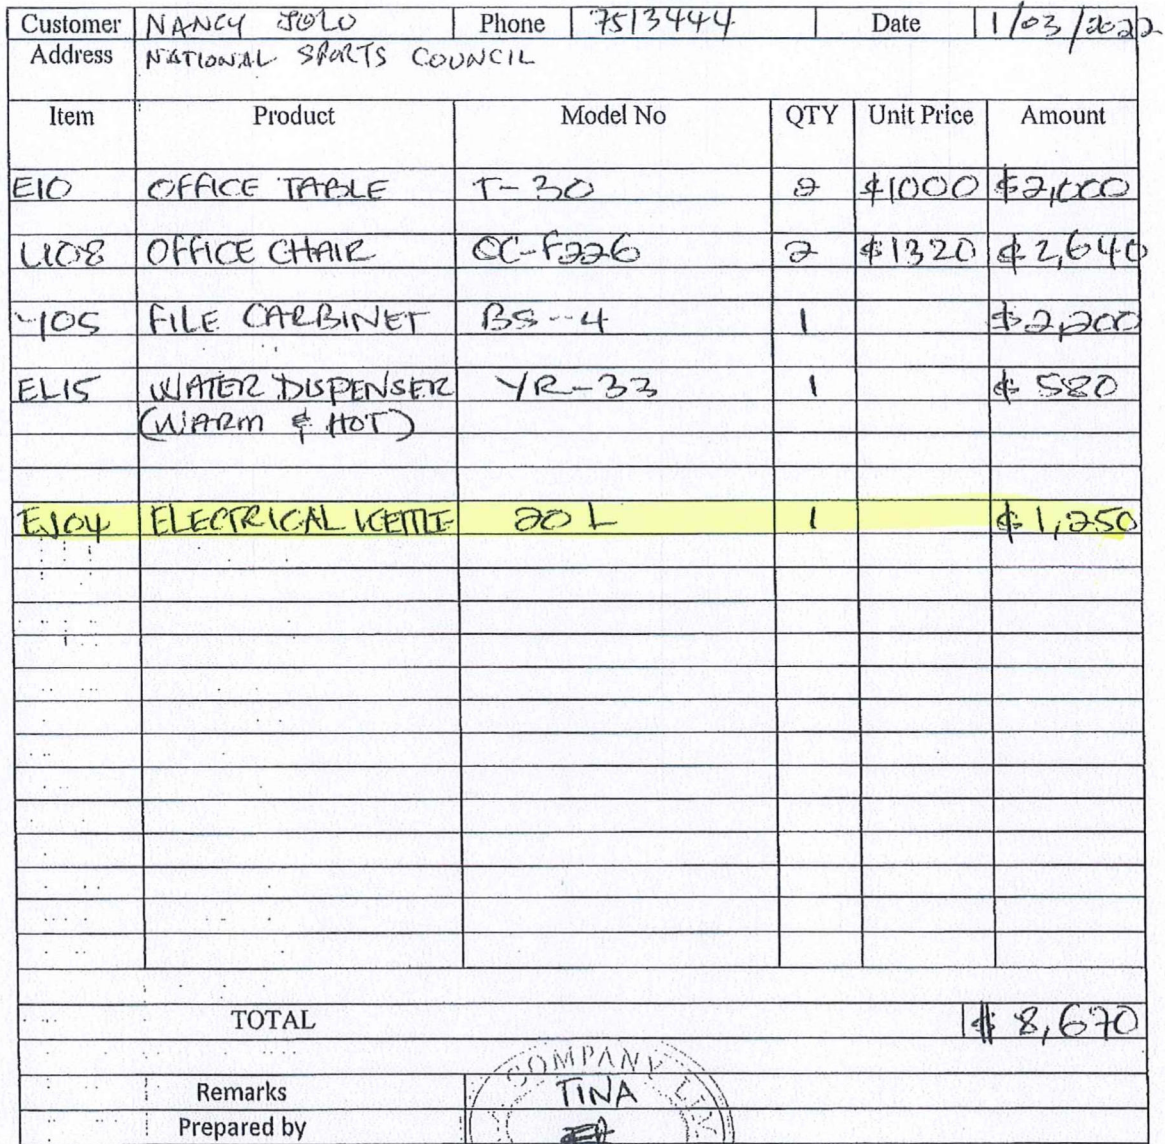 Customer NANCY JOLO Phone 7513444 Date 1/03/2022
Address NATIONAL SPORTS COUNCIL
Item Product Model No QTY Unit Price Amount
E10 OFFICE TABLE T-30 2 $1000 $2,000
U108 OFFICE CHAIR OC-F226 2 $1320 $2,640
Y105 FILE CARBINET BS--4 1 $2,200
EL15 WATER DISPENSER YR-33 1 $580
(WARM & HOT)
EJ04 ELECTRICAL KETTLE 20 L 1 $1,250
TOTAL $8,670
COMPANY
Remarks TINA
Prepared by